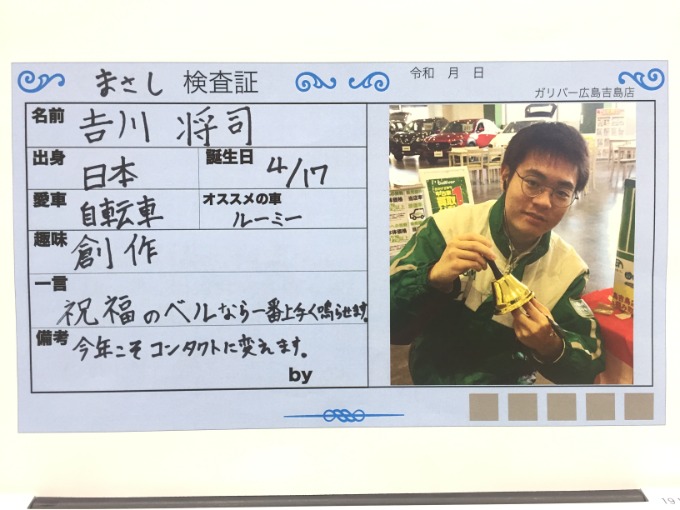 まさし 検査証
令和 月 日
ガリバー広島吉島店
名前 吉川 将司
出身 日本 誕生日 4/17
愛車 自転車 オススメの車 ルーミー
趣味 創作
一言
祝福のベルなら一番上手く鳴らせます。
備考 今年こそコンタクトに変えます。
by